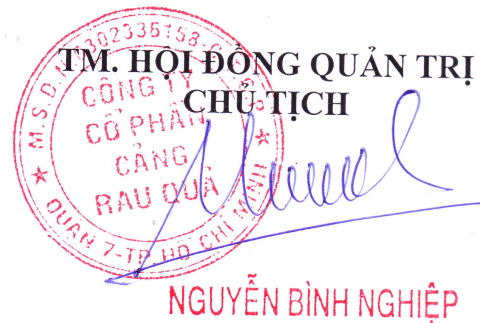 TM. HỘI ĐỒNG QUẢN TRỊ
CHỦ TỊCH
CÔNG TY
CỔ PHẦN
CẢNG
RAU QUẢ
QUẬN 7-TP. HỒ CHÍ MINH
NGUYỄN BÌNH NGHIỆP